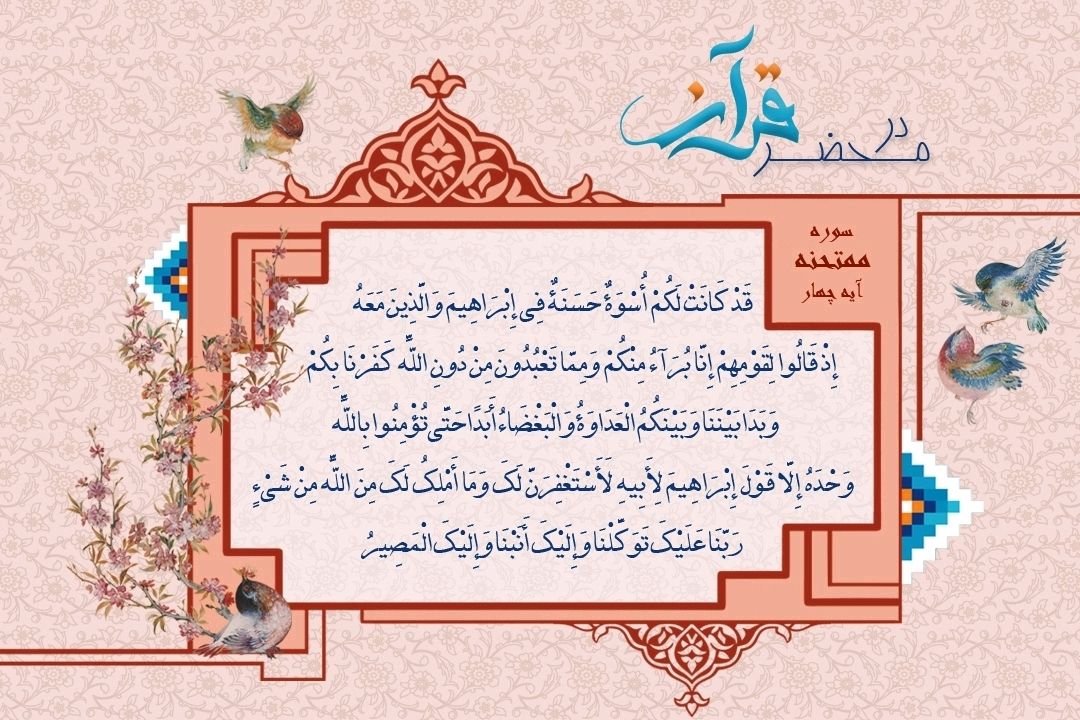 در محضر قرآن
سوره
ممتحنه
آیه چهار
قَدْ كَانَتْ لَكُمْ أُسْوَةٌ حَسَنَةٌ فِی إِبْرَاهِیمَ وَالَّذِینَ مَعَهُ
إِذْ قَالُوا لِقَوْمِهِمْ إِنَّا بُرَآءُ مِنْكُمْ وَمِمَّا تَعْبُدُونَ مِنْ دُونِ اللَّهِ كَفَرْنَا بِكُمْ
وَبَدَا بَیْنَنَا وَبَیْنَكُمُ الْعَدَاوَةُ وَالْبَغْضَاءُ أَبَدًا حَتَّى تُؤْمِنُوا بِاللَّهِ
وَحْدَهُ إِلَّا قَوْلَ إِبْرَاهِیمَ لِأَبِیهِ لَأَسْتَغْفِرَنَّ لَکَ وَمَا أَمْلِکُ لَکَ مِنَ اللَّهِ مِنْ شَیْءٍ
رَبَّنَا عَلَیْکَ تَوَكَّلْنَا وَإِلَیْکَ أَنَبْنَا وَإِلَیْکَ الْمَصِیرُ